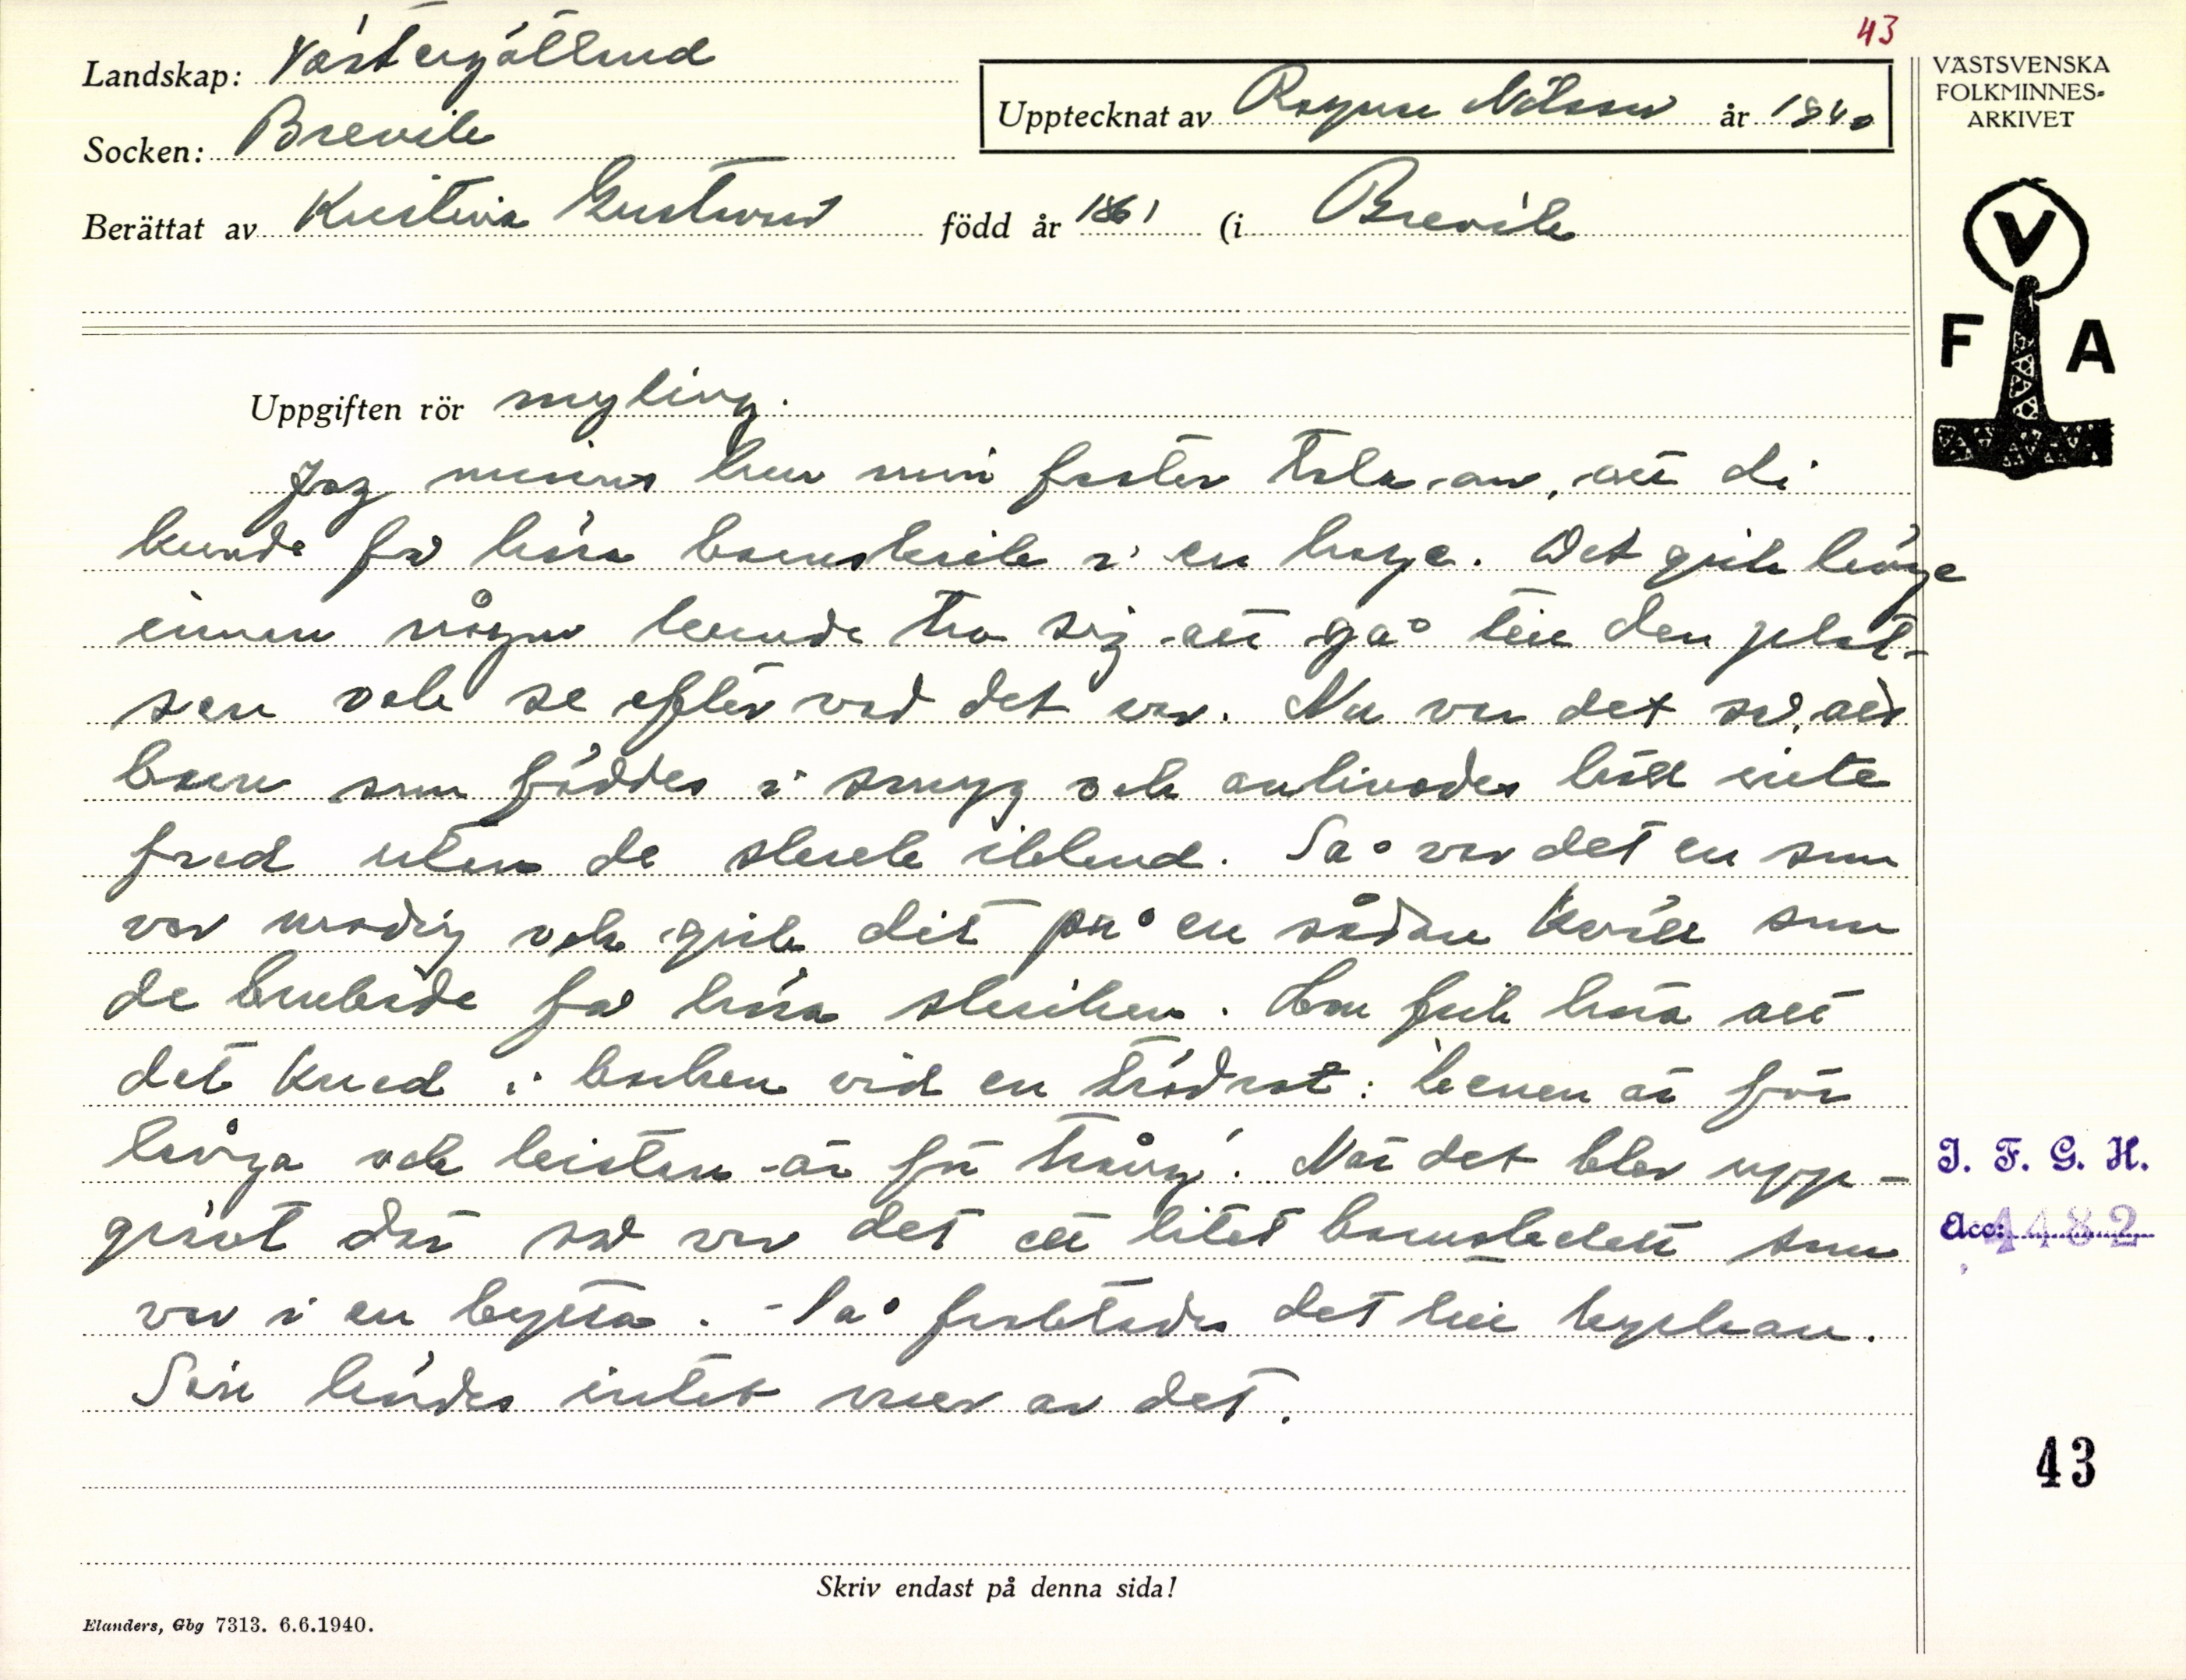 43
Landskap: Västergötland
Socken: Brevik
Upptecknat av Ragnar Nilsson år 1940
Berättat av Kristina Gustavsd född år 1861 (i Brevik
VÄSTSVENSKA
FOLKMINNES-
ARKIVET
V
F A
Uppgiften rör myling.
Jag minns hur min faster tala om, att di
kunde få höra barnskrik i en hage. Det gick länge
innan någon kunde tro sig att gå till den plat-
sen och se efter vad det var. Nu var det så, att
barn som föddes i smyg och avlivades höll inte
fred utan de skrek ibland. Så var det en som
var modig och gick dit på en sådan kväll som
de brukade få höra skriken. Han fick höra att
det kved i backen vid en trädrot: 'benen är för
långa och kistan är för trång'. När det blev upp-
grävt där så var det ett litet barnskelett som
var i en bytta. - Så forslades det till kyrkan.
Sen hördes intet mer av det.
I. F. G. H.
Acc: 4482
43
Skriv endast på denna sida!
Elanders, Gbg 7313. 6.6.1940.